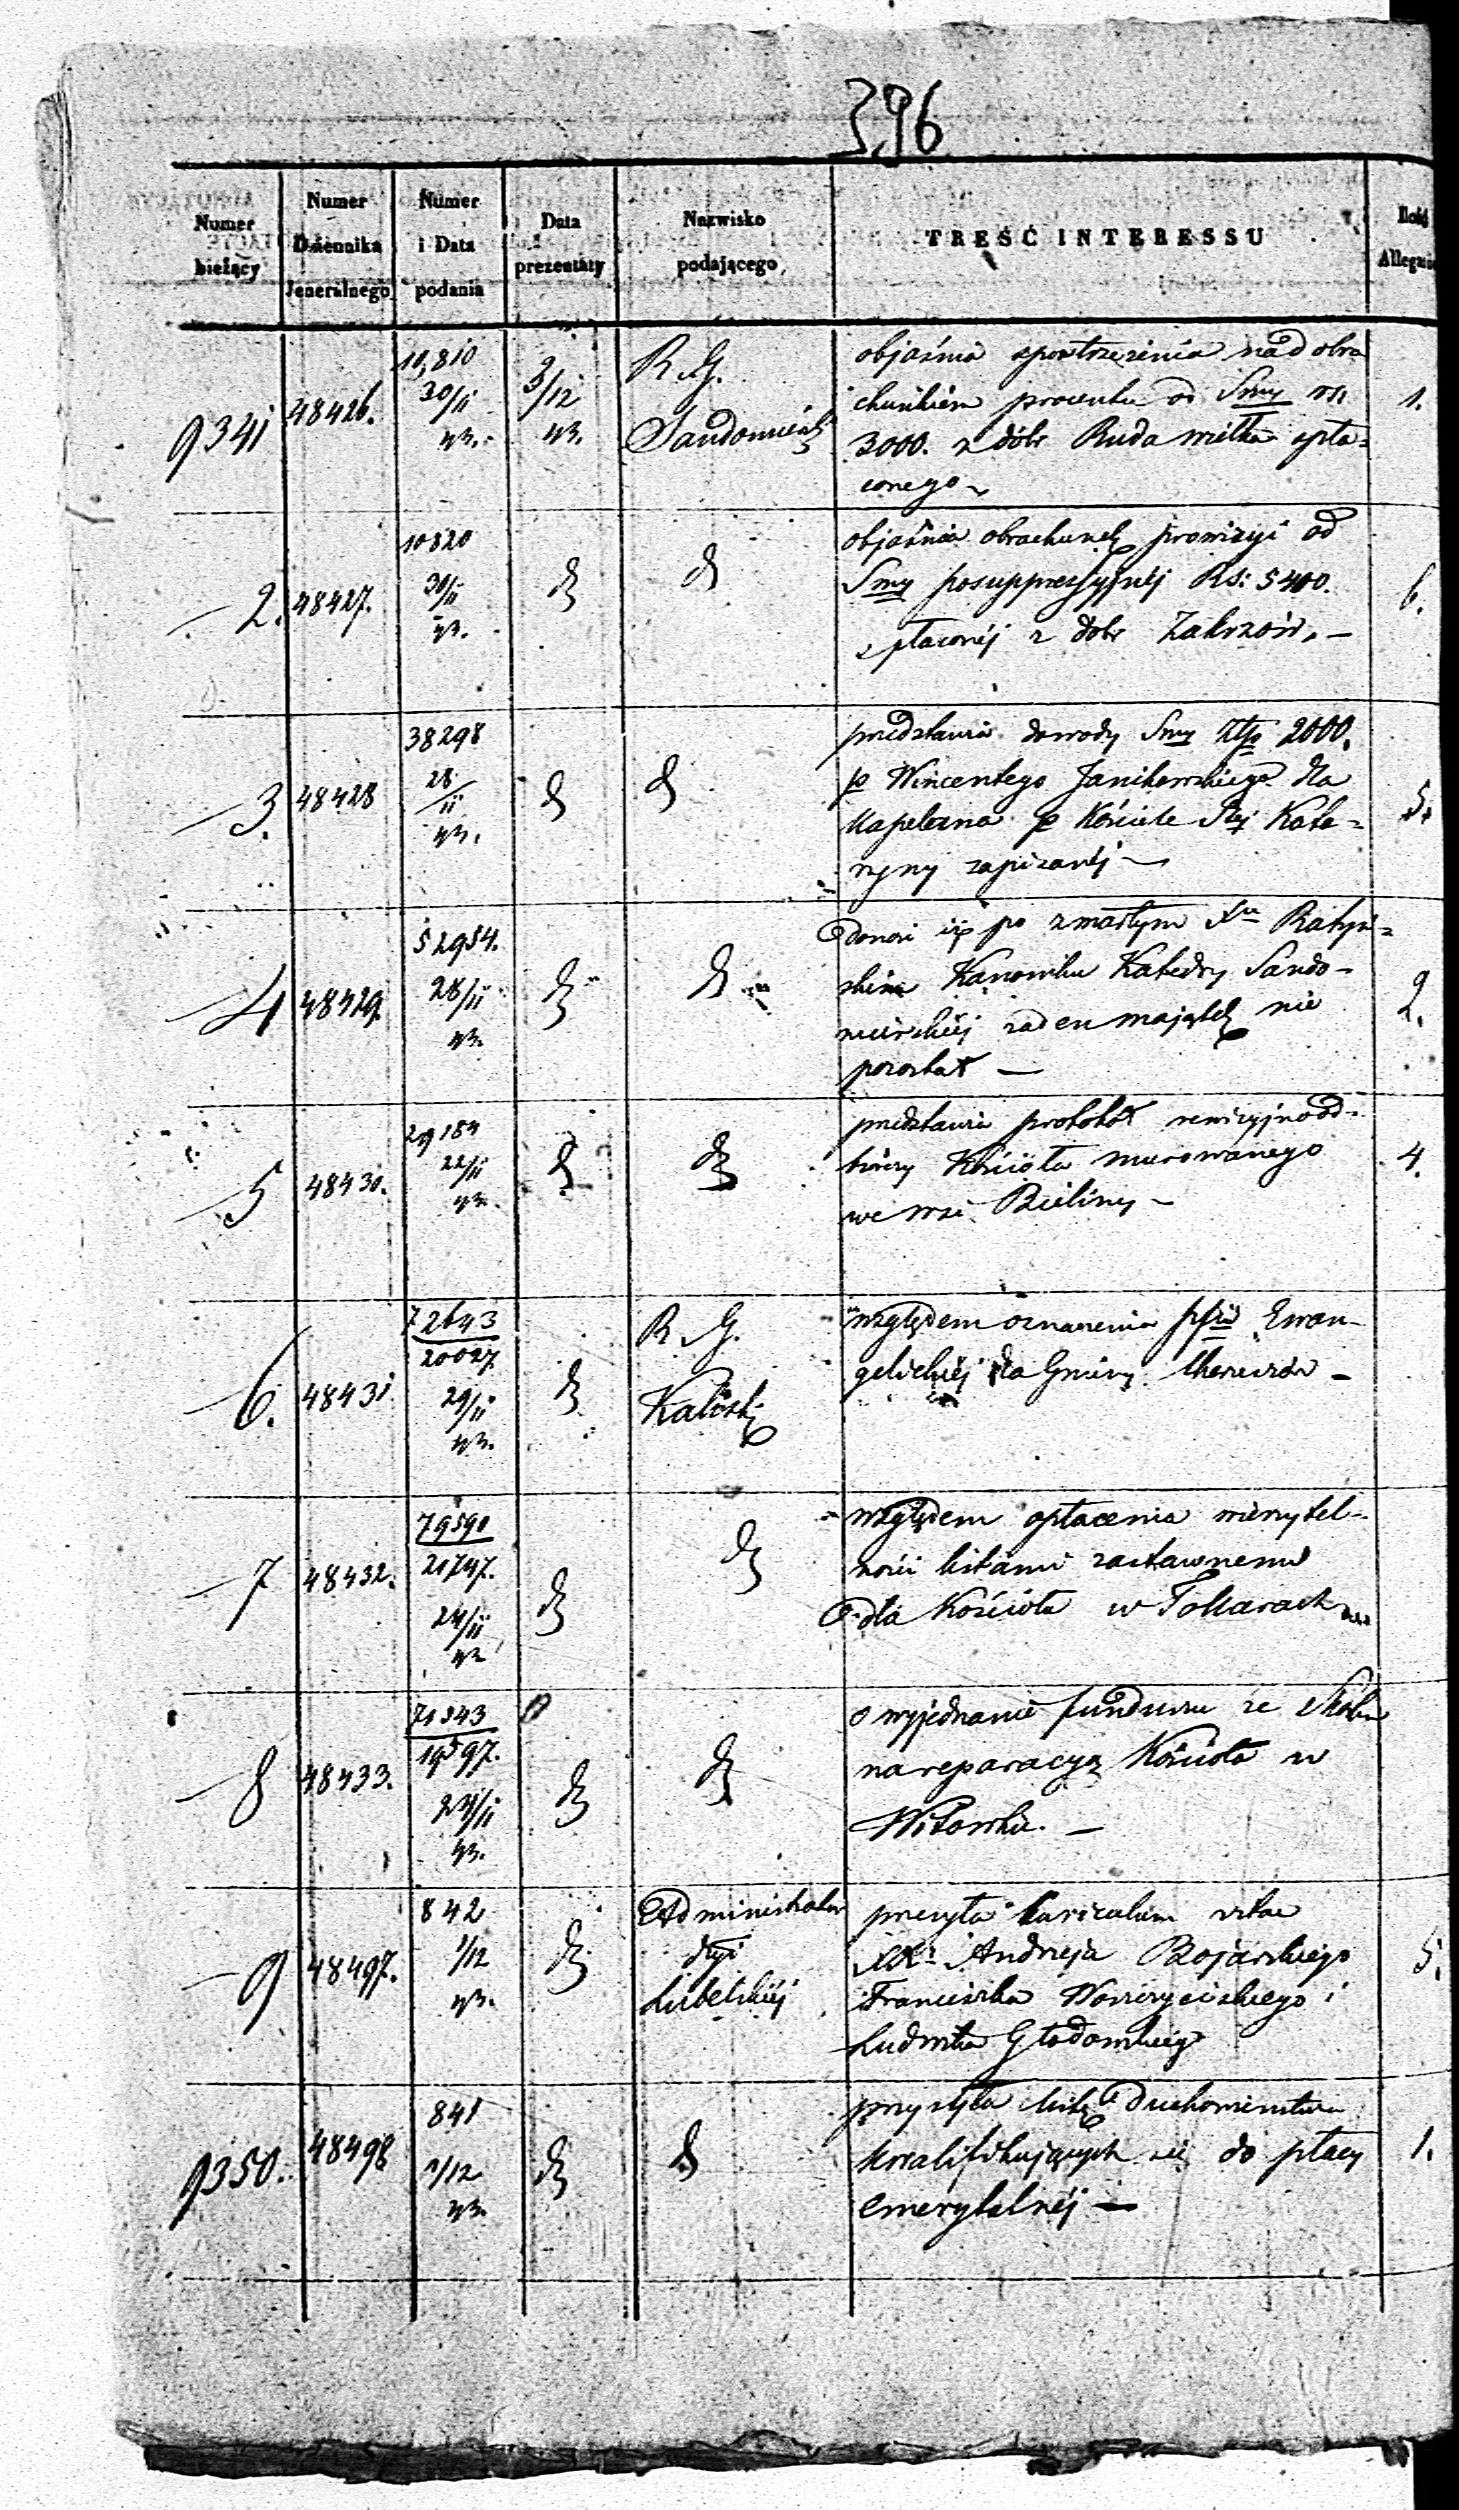 396
Numer bieżący
Numer Dziennika Jeneralnego
Numer i Data podania
Data prezentaty
Nazwisko podającego
TREŚĆ INTERESSU
Ilość
9341
48426.
10,810
30/11
43.
3/12
43.
R. G.
objaśnia spostrzeżenia nad obra
chunkiem procentu od Smy
3000. z dóbr Ruda wielka spła=
conego
1.
2.
48427.
10820
30/11
43.
objaśnia obrachunek prowizyi od
Smy posuppressyjnéj Rs: 5400.
spłaconéj z dóbr Zakrzów. —
6.
3.
48428
38298
28/11
43.
przedstawia dowody Smy Złp 2000.
p Wincentego Janikowskiego dla
Kapelana p Kościele Stej Kata=
rzyny zapisanéj —
5.
4
48429.
52954.
28/11
43.
donosi iż po zmarłym Xu Ratyń=
skim Kanoniku Katedry Sando-
mierskiéj żaden majątek nie
pozostał —
2.
5
48430.
29184
22/11
43.
przedstawia protokół rewizyjno od-
biorczy Kościoła murowanego
we wsi Bieliny —
4.
6.
48431
72643
20027
29/11
43.
R. G.
Kaliski
względem oznaczenia pfii Ewan-
gelickiéj dla Gminy —
7
48432.
79590
21747.
24/11
43
względem opłacenia wierzytel-
ności listami zastawnemi
dla Kościoła w Tokarach
8
48433.
19597.
43.
o wyjednanie funduszu ze Skarbu
na reparacyą Kościoła w
Witowku. —
9
48497.
842
1/12
43.
Administrator
dyi
Lubelskiéj
przesyła curiculum vitae
XX: Andrzeja Bojarskiego
Franciszka i
Ludwika Głodowskiego
5.
9350.
48498
841
1/12
43.
przysyła listę Duchowieństwa
kwalifikujących się do płacy
emerytalnéj —
1.